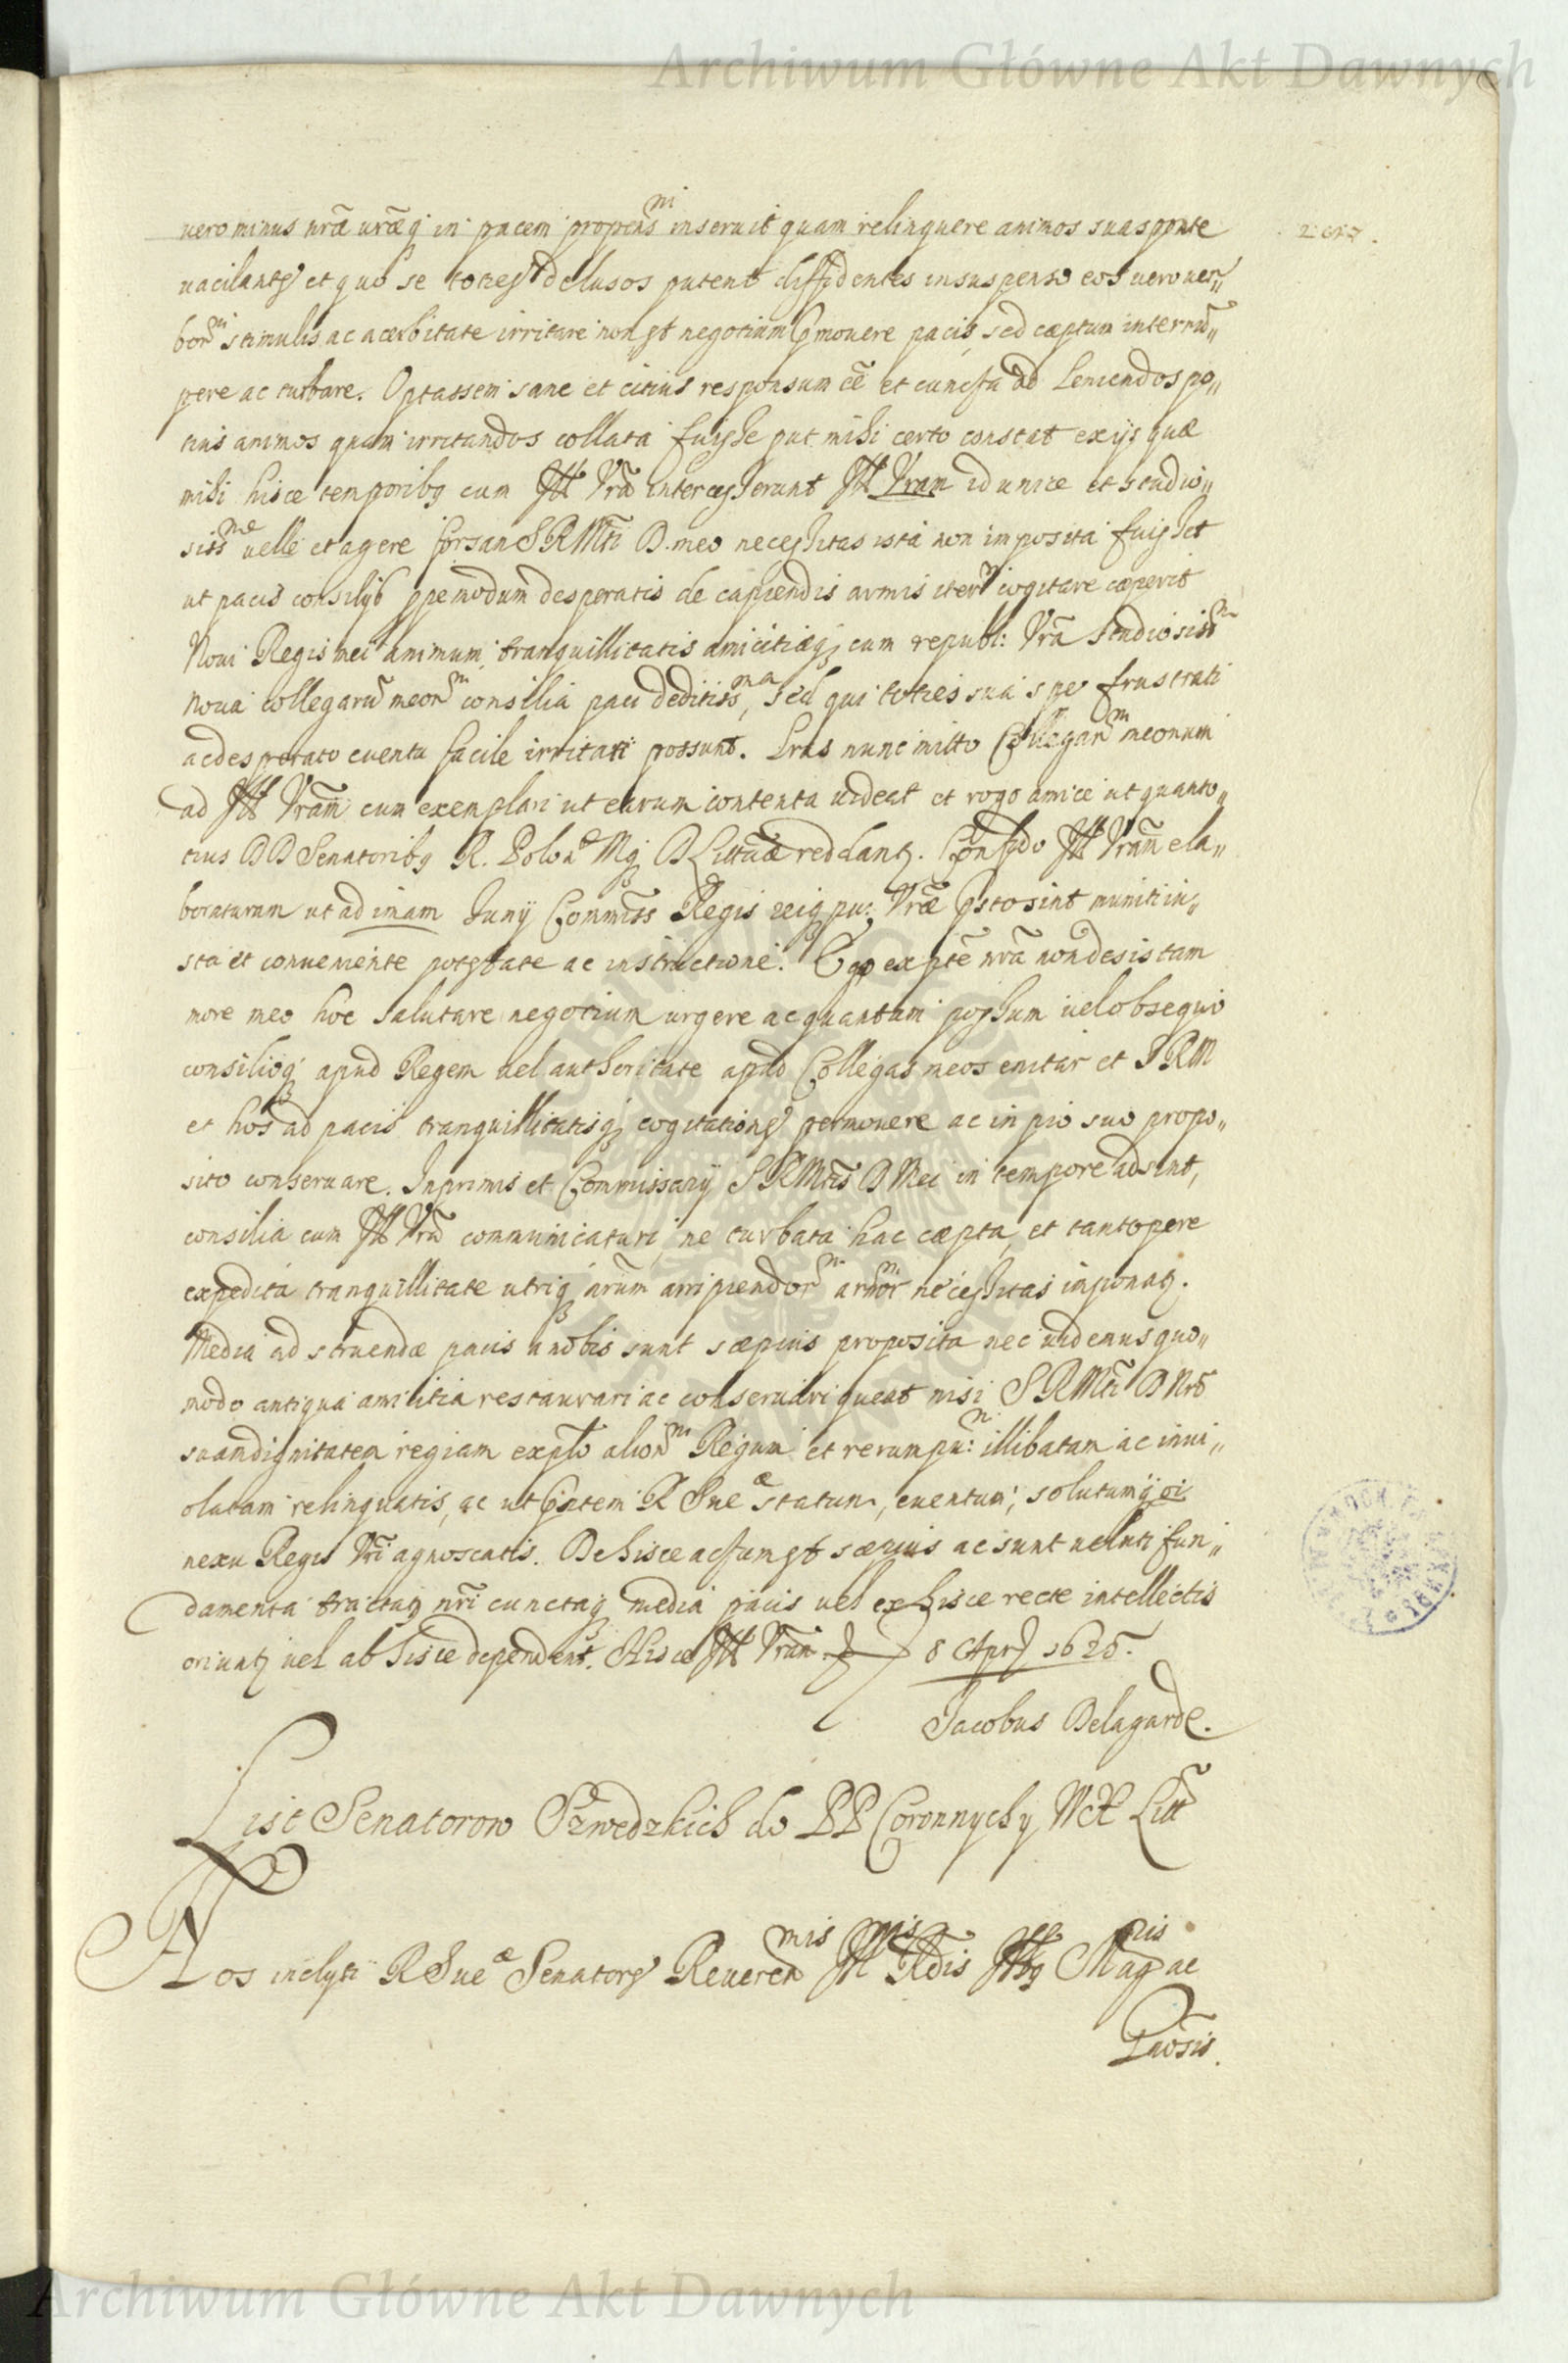 Archiwum Główne Akt Dawnych
uero minus nrã urãq in pacem propens^m inseruit quam relinquere animos sua sponte
uacilantes et quo se toties delusos putent diffidentes in suspenso eos uero uer„
bor^m stimulis ac acerbitate irritare non est negotium pmouere pacis, sed cæptum interrũ„
pere ac turbare. Optassem sane et citius responsum eẽ et cuncta ad leniendos po„
tius animos quam irritandos collata fuisse put mihi certo constat ex ijs quæ
mihi hisce temporibq cum Ill Vrã intercesserunt Ill Vram id unice et studio„
siss^me uelle et agere forsan S R Mti D. meo necessitas ista non imposita fuisset
ut pacis consilijs ppemodum desperatis de capiendis armis iter^m cogitare cæperit
Noui Regis mei animum tranquillitatis amicitiæq cum republ: Vrã studiosiss^m
noui collegarũ meor^m consilia paci deditiss^ma, sed qui toties sua spe frustrati
ac desperato euentu facile irritari possunt. Lras nunc mitto Collegar^m meorum
ad Ill Vram cum exemplari ut earum contenta uideat et rogo amice ut quanto„
tius D D Senatoribq R. Polonæ Mq D Littuæ reddantz. Confido Ill Vram ela„
boraturam ut ad imam Junij Commiss Regis reiq pu: Vræ psto sint muniti iu„
sta et conueniente potestate ac instructione. Ego ex pte nrã non desistam
more meo hoc salutare negotium urgere ac quantum possum uel obsequio
consilioq apud Regem uel authoritate apud Collegas meos enitar et S R M
et hos ad pacis tranquillitatisq cogitationes permouere ac in pio suo propo„
sito conseruare. Inprimis et Commissarij S R Mtis D Mei in tempore adsint,
consilia cum Ill Vrã communicaturi, ne turbata hac cæpta, et tantopere
expedita tranquillitate utriq arripiendor^m armor^m necessitas inponatz.
Media adstruendæ pacis a nobis sunt sæpius proposita nec uidemus quo„
modo antiqua amicitia restaurari ac conseruari queat nisi S R Mti D Nrõ
suam dignitatem regiam explo alior^m Regum et rerumpu^m: illibatam ac inui„
olatam relinquatis, ac ut pntem R Sueæ statum, euentum, solutumq oi
nexu Regis Vri agnoscatis. De hisce actum est sæpius ac sunt ueluti fun„
damenta tractatq nri cunctaq media pacis uel ex hisce recte intellectis
oriuntz uel ab hisce dependent. Hisce Ill Vram 8 Apr 1625.
Jacobus Delagarde.
List Senatorow Szwedzkich do PP Coronnych y WX Litt
Nos inclyti R Sueæ Senatores Reueren^mis Ill^mis Rdis Illbq Mag^cis ac
Gnosis.
Archiwum Główne Akt Dawnych